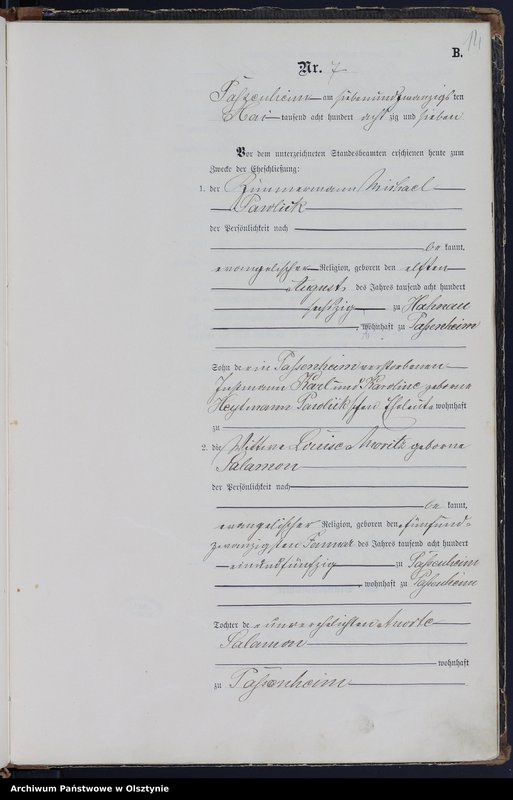 14
B.
Nr. 7
Passenheim am siebenundzwanzigsten
Mai tausend acht hundert achtzig und sieben
Vor dem unterzeichneten Standesbeamten erschienen heute zum
Zwecke der Eheschließung:
1. der Zimmermann Michael
Pawlick
der Persönlichkeit nach
bekannt,
evangelischer Religion, geboren den elften
August des Jahres tausend acht hundert
sechzig zu
wohnhaft zu Passenheim
Sohn de r in Passenheim verstorbenen
Instmann Karl und Karoline geborene
Heylmann Pawlick'schen Eheleute wohnhaft
zu
2. die Wittwe Louise Moritz geborne
Salamon
der Persönlichkeit nach
bekannt,
evangelischer Religion, geboren den fünfund-
zwanzigsten Januar des Jahres tausend acht hundert
einundfünfzig zu Passenheim
, wohnhaft zu Passenheim
Tochter de r unverehelichten
Salamon
wohnhaft
zu Passenheim
Archiwum Państwowe w Olsztynie